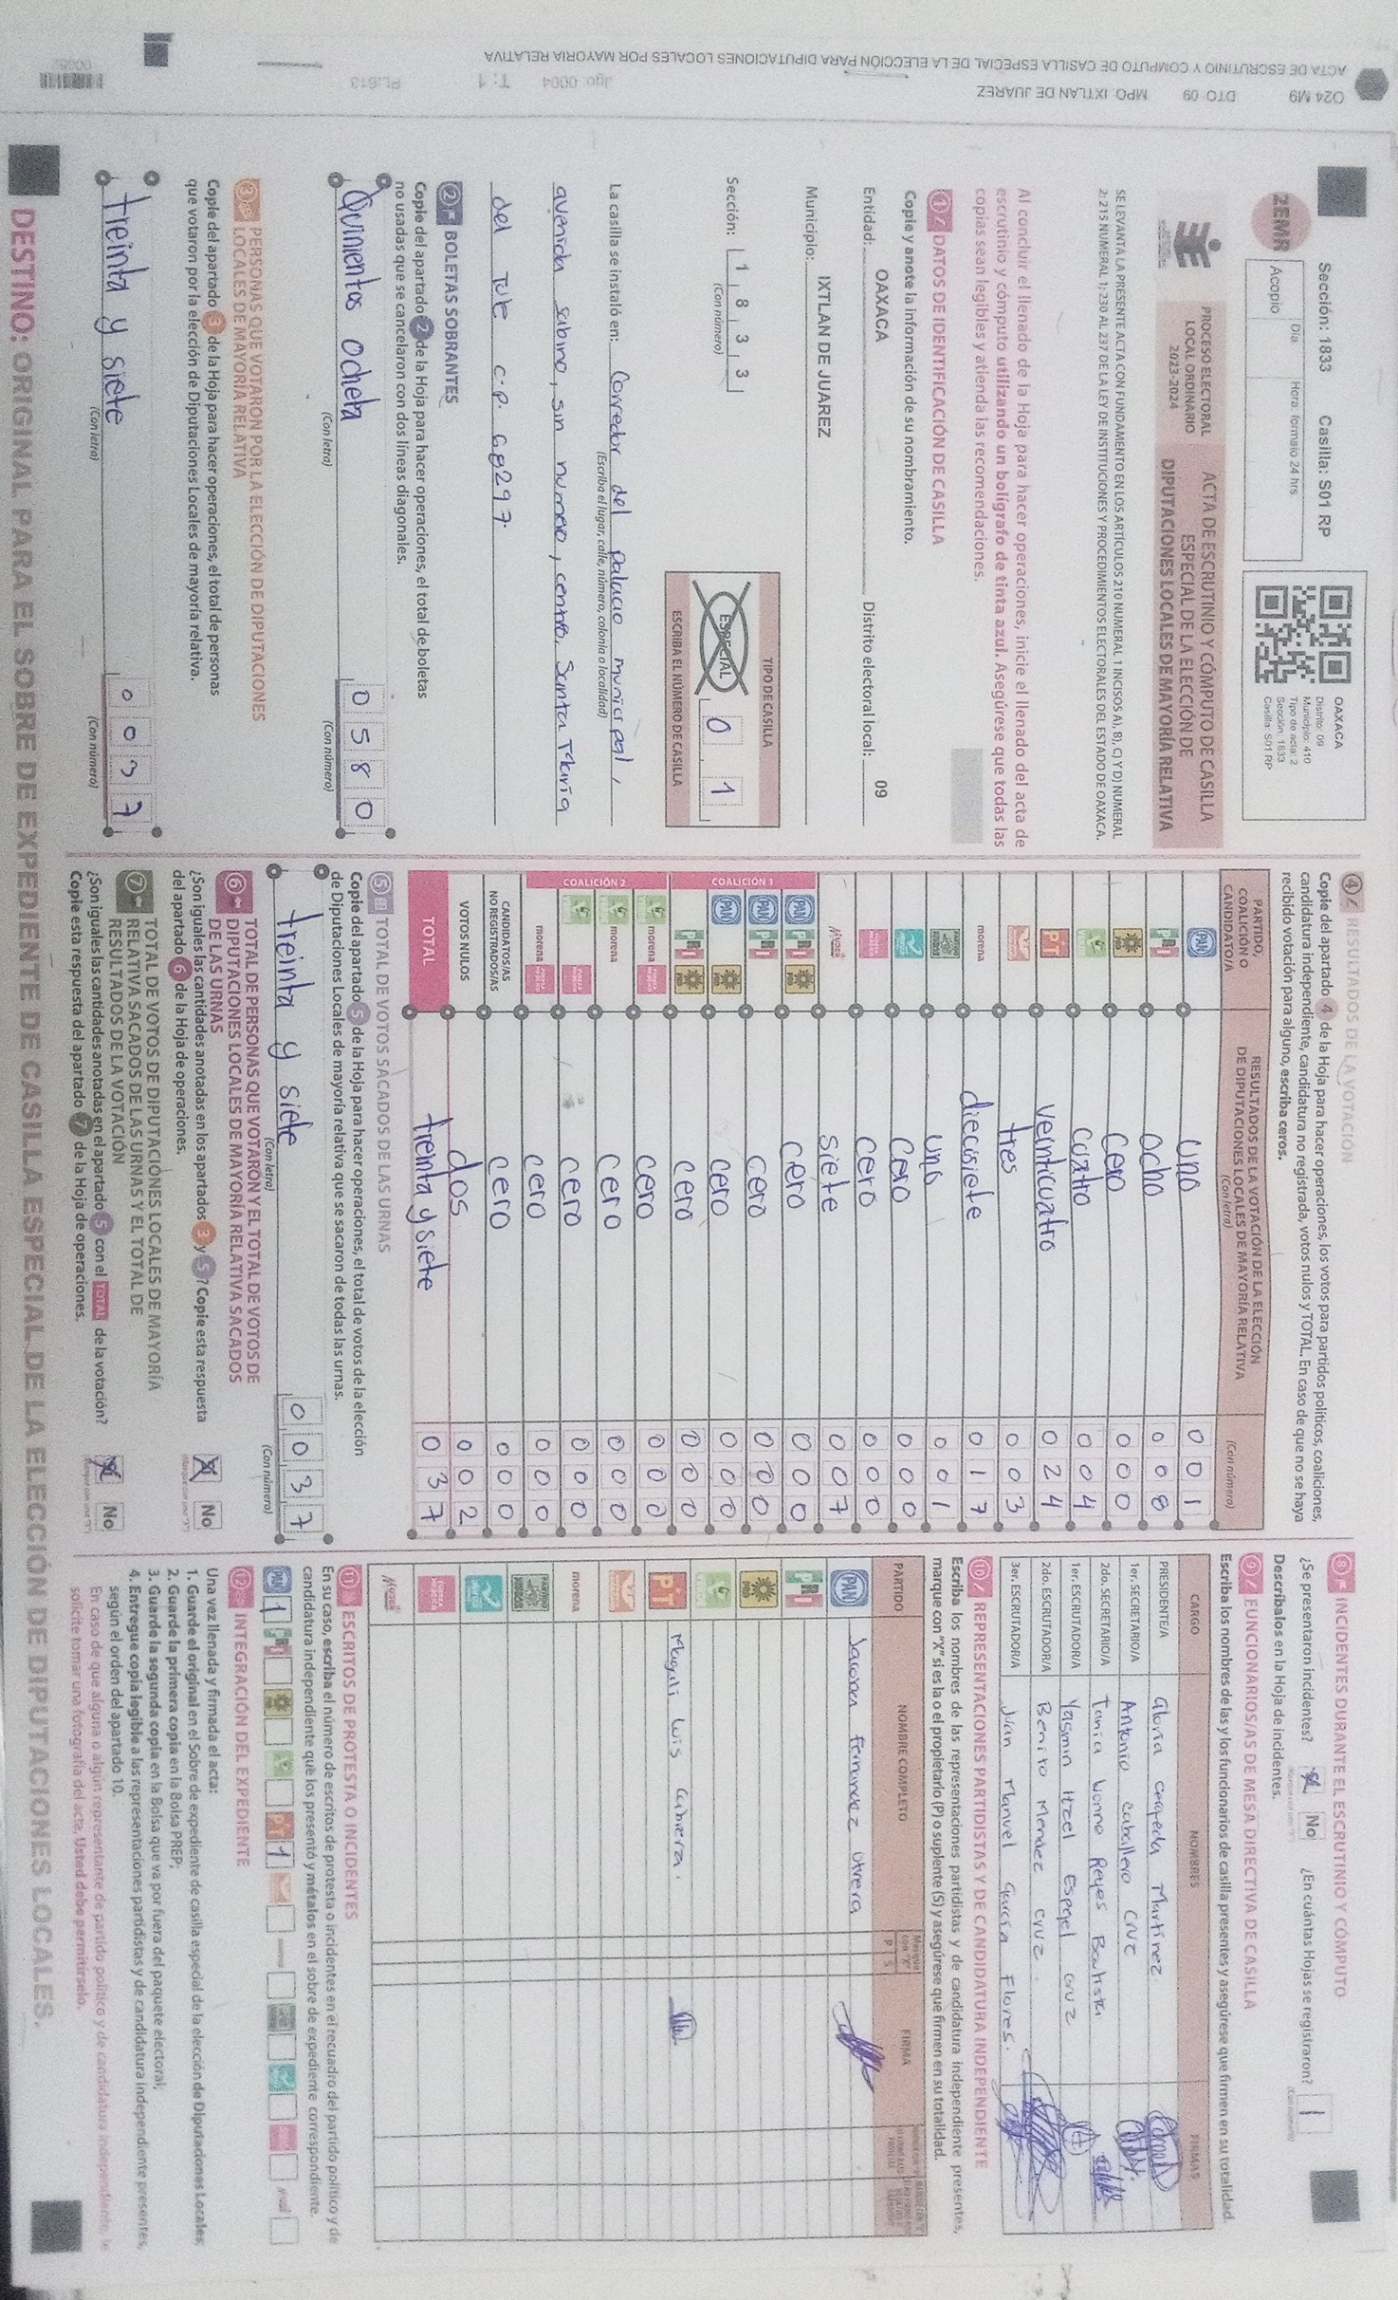 Sección: 1833 Casilla: S01 RP
2EMR
Día Hora: formato 24 hrs
Acopio
OAXACA
Distrito: 09
Municipio: 410
Tipo de acta: 2
Sección: 1833
Casilla: S01 RP
PROCESO ELECTORAL
LOCAL ORDINARIO
2023-2024
ACTA DE ESCRUTINIO Y CÓMPUTO DE CASILLA
ESPECIAL DE LA ELECCIÓN DE
DIPUTACIONES LOCALES DE MAYORÍA RELATIVA
SE LEVANTA LA PRESENTE ACTA CON FUNDAMENTO EN LOS ARTÍCULOS 210 NUMERAL 1 INCISOS A), B), C) Y D) NUMERAL
2; 215 NUMERAL 1; 230 AL 237 DE LA LEY DE INSTITUCIONES Y PROCEDIMIENTOS ELECTORALES DEL ESTADO DE OAXACA.
Al concluir el llenado de la Hoja para hacer operaciones, inicie el llenado del acta de
escrutinio y cómputo utilizando un bolígrafo de tinta azul. Asegúrese que todas las
copias sean legibles y atienda las recomendaciones.
1 DATOS DE IDENTIFICACIÓN DE CASILLA
Copie y anote la información de su nombramiento.
Entidad: OAXACA Distrito electoral local: 09
Municipio: IXTLAN DE JUAREZ
Sección: 1 8 3 3
(Con número)
TIPO DE CASILLA
ESPECIAL 0 1
ESCRIBA EL NÚMERO DE CASILLA
La casilla se instaló en: Corredor del palacio municipal,
(Escriba el lugar, calle, número, colonia o localidad)
avenida sabino, sin numero, centro, Santa María
del Tule c.p. 68297.
2 BOLETAS SOBRANTES
Copie del apartado 2 de la Hoja para hacer operaciones, el total de boletas
no usadas que se cancelaron con dos líneas diagonales.
Quinientos ocheta 0 5 8 0
(Con letra) (Con número)
3 PERSONAS QUE VOTARON POR LA ELECCIÓN DE DIPUTACIONES
LOCALES DE MAYORÍA RELATIVA
Copie del apartado 3 de la Hoja para hacer operaciones, el total de personas
que votaron por la elección de Diputaciones Locales de mayoría relativa.
treinta y siete 0 0 3 7
(Con letra) (Con número)
4 RESULTADOS DE LA VOTACIÓN
Copie del apartado 4 de la Hoja para hacer operaciones, los votos para partidos políticos, coaliciones,
candidatura independiente, candidatura no registrada, votos nulos y TOTAL. En caso de que no se haya
recibido votación para alguno, escriba ceros.
PARTIDO, COALICIÓN O CANDIDATO/A
RESULTADOS DE LA VOTACIÓN DE LA ELECCIÓN
DE DIPUTACIONES LOCALES DE MAYORÍA RELATIVA
(Con letra) (Con número)
PAN uno 0 0 1
PRI ocho 0 0 8
PRD cero 0 0 0
cuatro 0 0 4
PT veinticuatro 0 2 4
tres 0 0 3
morena diecisiete 0 1 7
uno 0 0 1
cero 0 0 0
cero 0 0 0
siete 0 0 7
COALICIÓN 1
PAN PRI PRD cero 0 0 0
PAN PRI cero 0 0 0
PAN PRD cero 0 0 0
PRI PRD cero 0 0 0
COALICIÓN 2
morena cero 0 0 0
morena cero 0 0 0
cero 0 0 0
morena cero 0 0 0
CANDIDATOS/AS
NO REGISTRADOS/AS cero 0 0 0
VOTOS NULOS dos 0 0 2
TOTAL treinta y siete 0 3 7
5 TOTAL DE VOTOS SACADOS DE LAS URNAS
Copie del apartado 5 de la Hoja para hacer operaciones, el total de votos de la elección
de Diputaciones Locales de mayoría relativa que se sacaron de todas las urnas.
treinta y siete 0 0 3 7
(Con letra) (Con número)
6 TOTAL DE PERSONAS QUE VOTARON Y EL TOTAL DE VOTOS DE
DIPUTACIONES LOCALES DE MAYORÍA RELATIVA SACADOS
DE LAS URNAS
¿Son iguales las cantidades anotadas en los apartados 3 y 5? Copie esta respuesta
del apartado 6 de la Hoja de operaciones.
No
7 TOTAL DE VOTOS DE DIPUTACIONES LOCALES DE MAYORÍA
RELATIVA SACADOS DE LAS URNAS Y EL TOTAL DE
RESULTADOS DE LA VOTACIÓN
¿Son iguales las cantidades anotadas en el apartado 5 con el TOTAL de la votación?
Copie esta respuesta del apartado 7 de la Hoja de operaciones.
No
8 INCIDENTES DURANTE EL ESCRUTINIO Y CÓMPUTO
¿Se presentaron incidentes? No ¿En cuántas Hojas se registraron? 1
Descríbalos en la Hoja de incidentes.
9 FUNCIONARIOS/AS DE MESA DIRECTIVA DE CASILLA
Escriba los nombres de las y los funcionarios de casilla presentes y asegúrese que firmen en su totalidad.
CARGO NOMBRES FIRMAS
PRESIDENTE/A Gloria Martínez
1er. SECRETARIO/A Antonio caballero cruz
2do. SECRETARIO/A Tania Reyes
1er. ESCRUTADOR/A Yasmin Itzel Espejel cruz
2do. ESCRUTADOR/A Benito Mendez cruz
3er. ESCRUTADOR/A Juan Manuel Garcia Flores.
10 REPRESENTACIONES PARTIDISTAS Y DE CANDIDATURA INDEPENDIENTE
Escriba los nombres de las representaciones partidistas y de candidatura independiente presentes,
marque con "X" si es la o el propietario (P) o suplente (S) y asegúrese que firmen en su totalidad.
PARTIDO NOMBRE COMPLETO P S FIRMA
PAN Fernandez Utrera
PRI
PRD
PT Magali Luis Cabrera.
morena
11 ESCRITOS DE PROTESTA O INCIDENTES
En su caso, escriba el número de escritos de protesta o incidentes en el recuadro del partido político y de
candidatura independiente que los presentó y métalos en el sobre de expediente correspondiente.
PAN 1 PRI PT 1
12 INTEGRACIÓN DEL EXPEDIENTE
Una vez llenada y firmada el acta:
1. Guarde el original en el Sobre de expediente de casilla especial de la elección de Diputaciones Locales;
2. Guarde la primera copia en la Bolsa PREP;
3. Guarde la segunda copia en la Bolsa que va por fuera del paquete electoral;
4. Entregue copia legible a las representaciones partidistas y de candidatura independiente presentes,
según el orden del apartado 10.
En caso de que alguna o algún representante de partido político y de candidatura independiente, le
solicite tomar una fotografía del acta, Usted debe permitírselo.
DESTINO: ORIGINAL PARA EL SOBRE DE EXPEDIENTE DE CASILLA ESPECIAL DE LA ELECCIÓN DE DIPUTACIONES LOCALES.
O24 M9 DTO: 09 MPO: IXTLAN DE JUAREZ
ACTA DE ESCRUTINIO Y COMPUTO DE CASILLA ESPECIAL DE LA ELECCIÓN PARA DIPUTACIONES LOCALES POR MAYORIA RELATIVA
Jgo: 0004 T: 1 PL:613